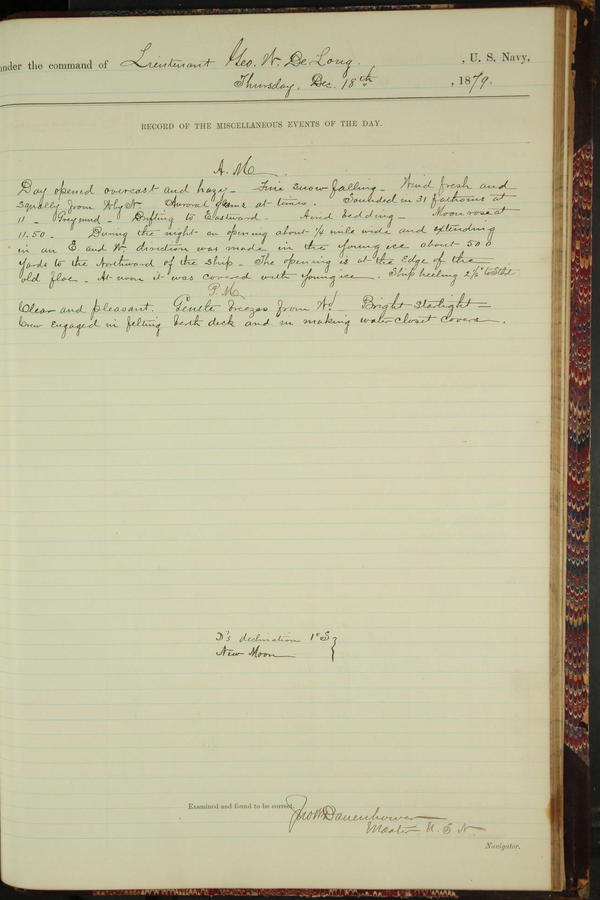 under the command of Lieutenant Geo. W. De Long, U. S. Navy,
Thursday, Dec. 18th, 1879.
RECORD OF THE MISCELLANEOUS EVENTS OF THE DAY.
A. M.
Day opened overcast and hazy - Fine snow falling - Wind fresh and
squally from WbyN. Auroral gleams at times. Sounded in 31 fathoms at
11 - Grey mud - Drifting to Eastward - Wind bedding - Moon rose at
11.50 - During the night an opening about 1/4 mile wide and extending
in an E. and W. direction was made in the young ice about 500
yards to the Northward of the ship - The opening is at the edge of the
old floe. At noon it was covered with young ice. Ship heeling 2½° to Stbd
P. M.
Clear and pleasant. Gentle breezes from Wd - Bright starlight -
Crew engaged in felting berth deck and in making water closet covers.
D's declination 1° S }
New Moon
Examined and found to be correct.
Jno W Danenhower
Master U. S. N.
Navigator.